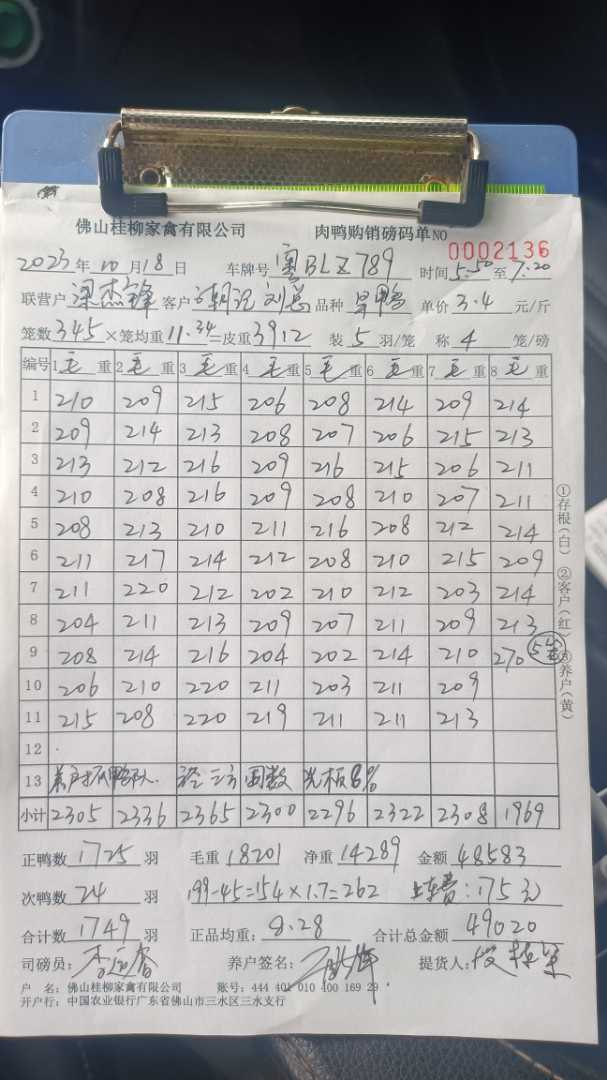 佛山桂柳家禽有限公司 肉鸭购销磅码单 NO 0002136
2023年10月18日 车牌号 粤BLZ789 时间5:50至7:20
联营户 梁杰锋 客户 刘总 品种 旱鸭 单价3.4元/斤
笼数345×笼均重11.34=皮重3912 装5羽/笼 称4笼/磅
编号 1毛重 2毛重 3毛重 4毛重 5毛重 6毛重 7毛重 8毛重
1 210 209 215 206 208 214 209 214
2 209 214 213 208 207 206 215 213
3 213 212 216 209 216 215 206 211
4 210 208 216 209 208 210 207 211
5 208 213 210 211 216 208 212 214
6 211 217 214 212 208 210 215 209
7 211 220 212 202 210 212 203 214
8 204 211 213 209 207 211 209 213
9 208 214 216 204 202 214 210 270 5笼
10 206 210 220 211 203 211 209
11 215 208 220 219 211 211 213
12
13
小计 2305 2336 2365 2300 2296 2322 2308 1969
正鸭数1725羽 毛重18201 净重14289 金额48583
次鸭数24羽 199-45=154×1.7=262 上车费:175元
合计数1749羽 正品均重:8.28 合计总金额49020
司磅员: 养户签名: 提货人:
户 名:佛山桂柳家禽有限公司 账号:444 401 010 400 169 29
开户行:中国农业银行广东省佛山市三水区三水支行
①存根(白) ②客户(红) ③养户(黄)